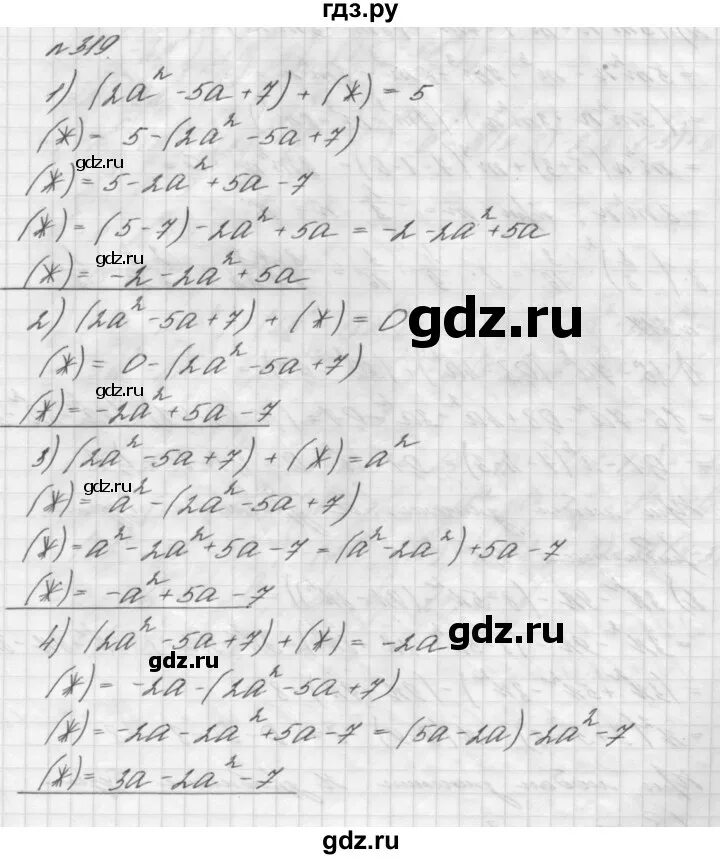 гдз.ру
№319
1) (2a² - 5a + 7) + (*) = 5
(*) = 5 - (2a² - 5a + 7)
gdz.ru
(*) = 5 - 2a² + 5a - 7
(*) = (5 - 7) - 2a² + 5a = -2 - 2a² + 5a
gdz.ru
(*) = -2 - 2a² + 5a
2) (2a² - 5a + 7) + (*) = 0
gdz.ru
(*) = 0 - (2a² - 5a + 7)
gdz.ru
(*) = -2a² + 5a - 7
3) (2a² - 5a + 7) + (*) = a²
gdz.ru
(*) = a² - (2a² - 5a + 7)
(*) = a² - 2a² + 5a - 7 = (a² - 2a²) + 5a - 7
(*) = -a² + 5a - 7
4) (2a² - 5a + 7) + (*) = -2a
gdz.ru
gdz.ru
(*) = -2a - (2a² - 5a + 7)
(*) = -2a - 2a² + 5a - 7 = (5a - 2a) - 2a² - 7
(*) = 3a - 2a² - 7
gdz.ru